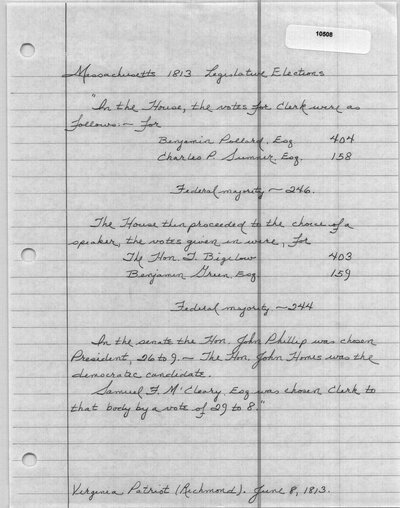 10508
Massachusetts 1813 Legislative Elections
"In the House, the votes for Clerk were as
follows:- for
Benjamin Pollard, Esq 404
Charles P. Sumner, Esq. 158
Federal majority ~ 246.
The House then proceeded to the choice of a
speaker, the votes given in were, for
The Hon. T. Bigelow 403
Benjamin Green Esq 159
Federal majority ~ 244
In the senate the Hon. John Phillip was chosen
President, 26 to 9. - The Hon. John Homes was the
democratic candidate.
Samuel F. McCleary, Esq was chosen Clerk to
that body by a vote of 29 to 8."
Virginia Patriot (Richmond). June 8, 1813.